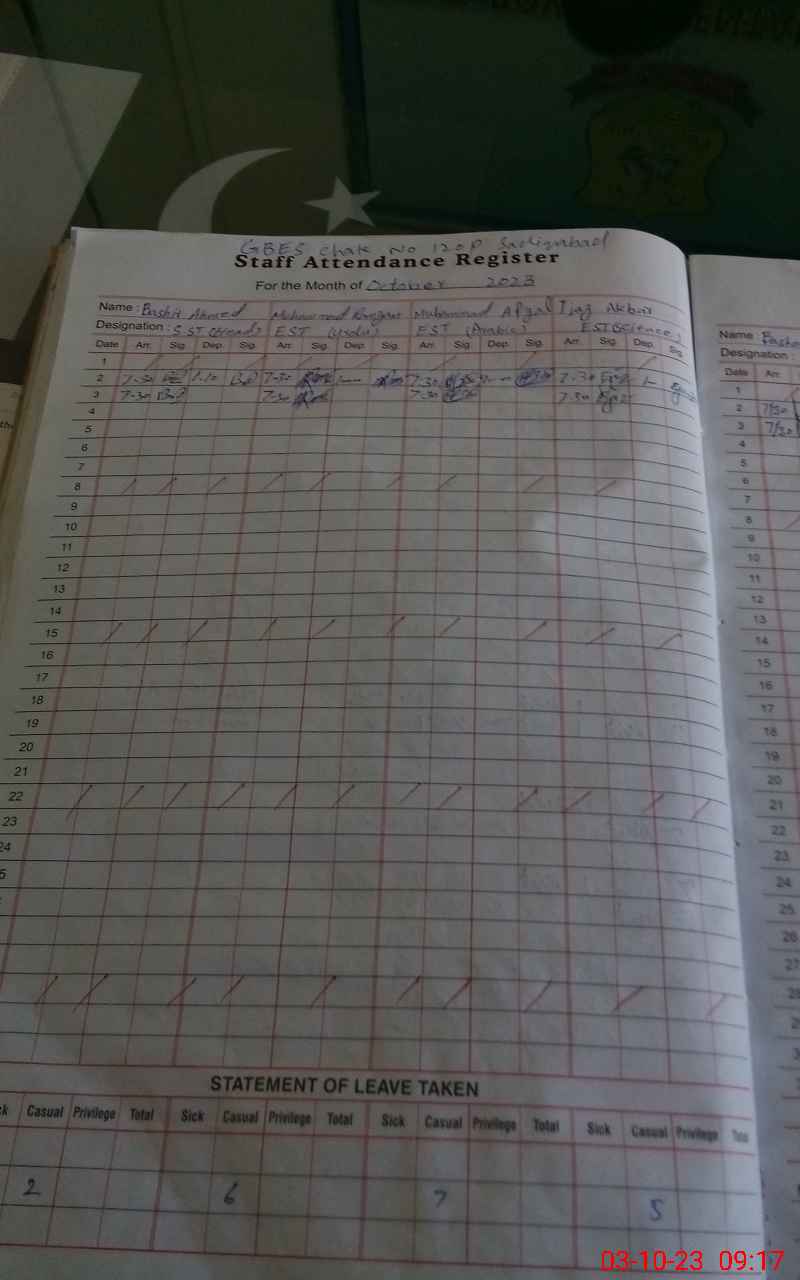 GBES Chak No 120P Sadiqabad
Staff Attendance Register
For the Month of October 2023
Name : Bashir Ahmed Muhammad Muhammad Afzal Ijaz Akbar
Designation : S.ST (Head) EST (Urdu) EST (Arabic) EST (Science)
Date Arr. Sig. Dep. Sig. Arr. Sig. Dep. Sig. Arr. Sig. Dep. Sig. Arr. Sig. Dep. Sig.
1
2 7-30 1-10 7-30 7-30 7-30
3 7-30 7-30 7-30 7-30
4
5
6
7
8
9
10
11
12
13
14
15
16
17
18
19
20
21
22
23
24
5
STATEMENT OF LEAVE TAKEN
ck Casual Privilege Total Sick Casual Privilege Total Sick Casual Privilege Total Sick Casual Privilege Total
2 6 7 5
Name :
Designation :
Date Arr.
1
2 7/30
3 7/30
4
5
6
7
8
9
10
11
12
13
14
15
16
17
18
19
20
21
22
23
24
25
26
27
28
2
3
03-10-23 09:17